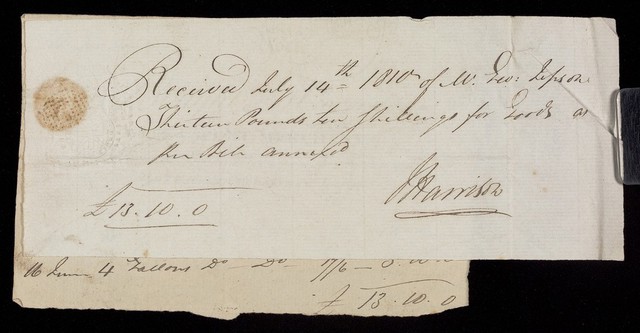 Received July 14th 1810 of Mr. Geo: Jepson
Thirteen Pounds ten Shillings for Goods as
per Bill annexd
£ 13.10.0
J Harrison
16 June 4 Gallons Do – Do – 17/6 –
£ 13.10.0